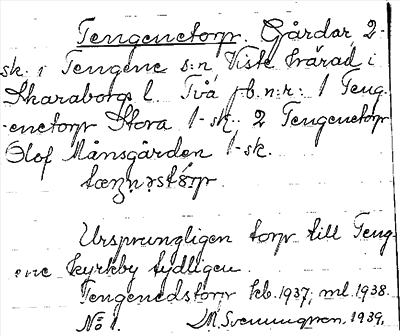 Tengenetorp. Gårdar, 2-
sk. i Tengene s:n, Viste härad i
Skaraborgs l. Två jb.n:r: 1 Teng-
-enetorp Stora 1-sk. 2 Tengenetorp
Olof Månsgården 1-sk.
Ursprungligen torp till Teng-
ene kyrkby tydligen.
Tengenedstorp kb. 1937, ml. 1938.
No 1. M. Svenungsson, 1939.